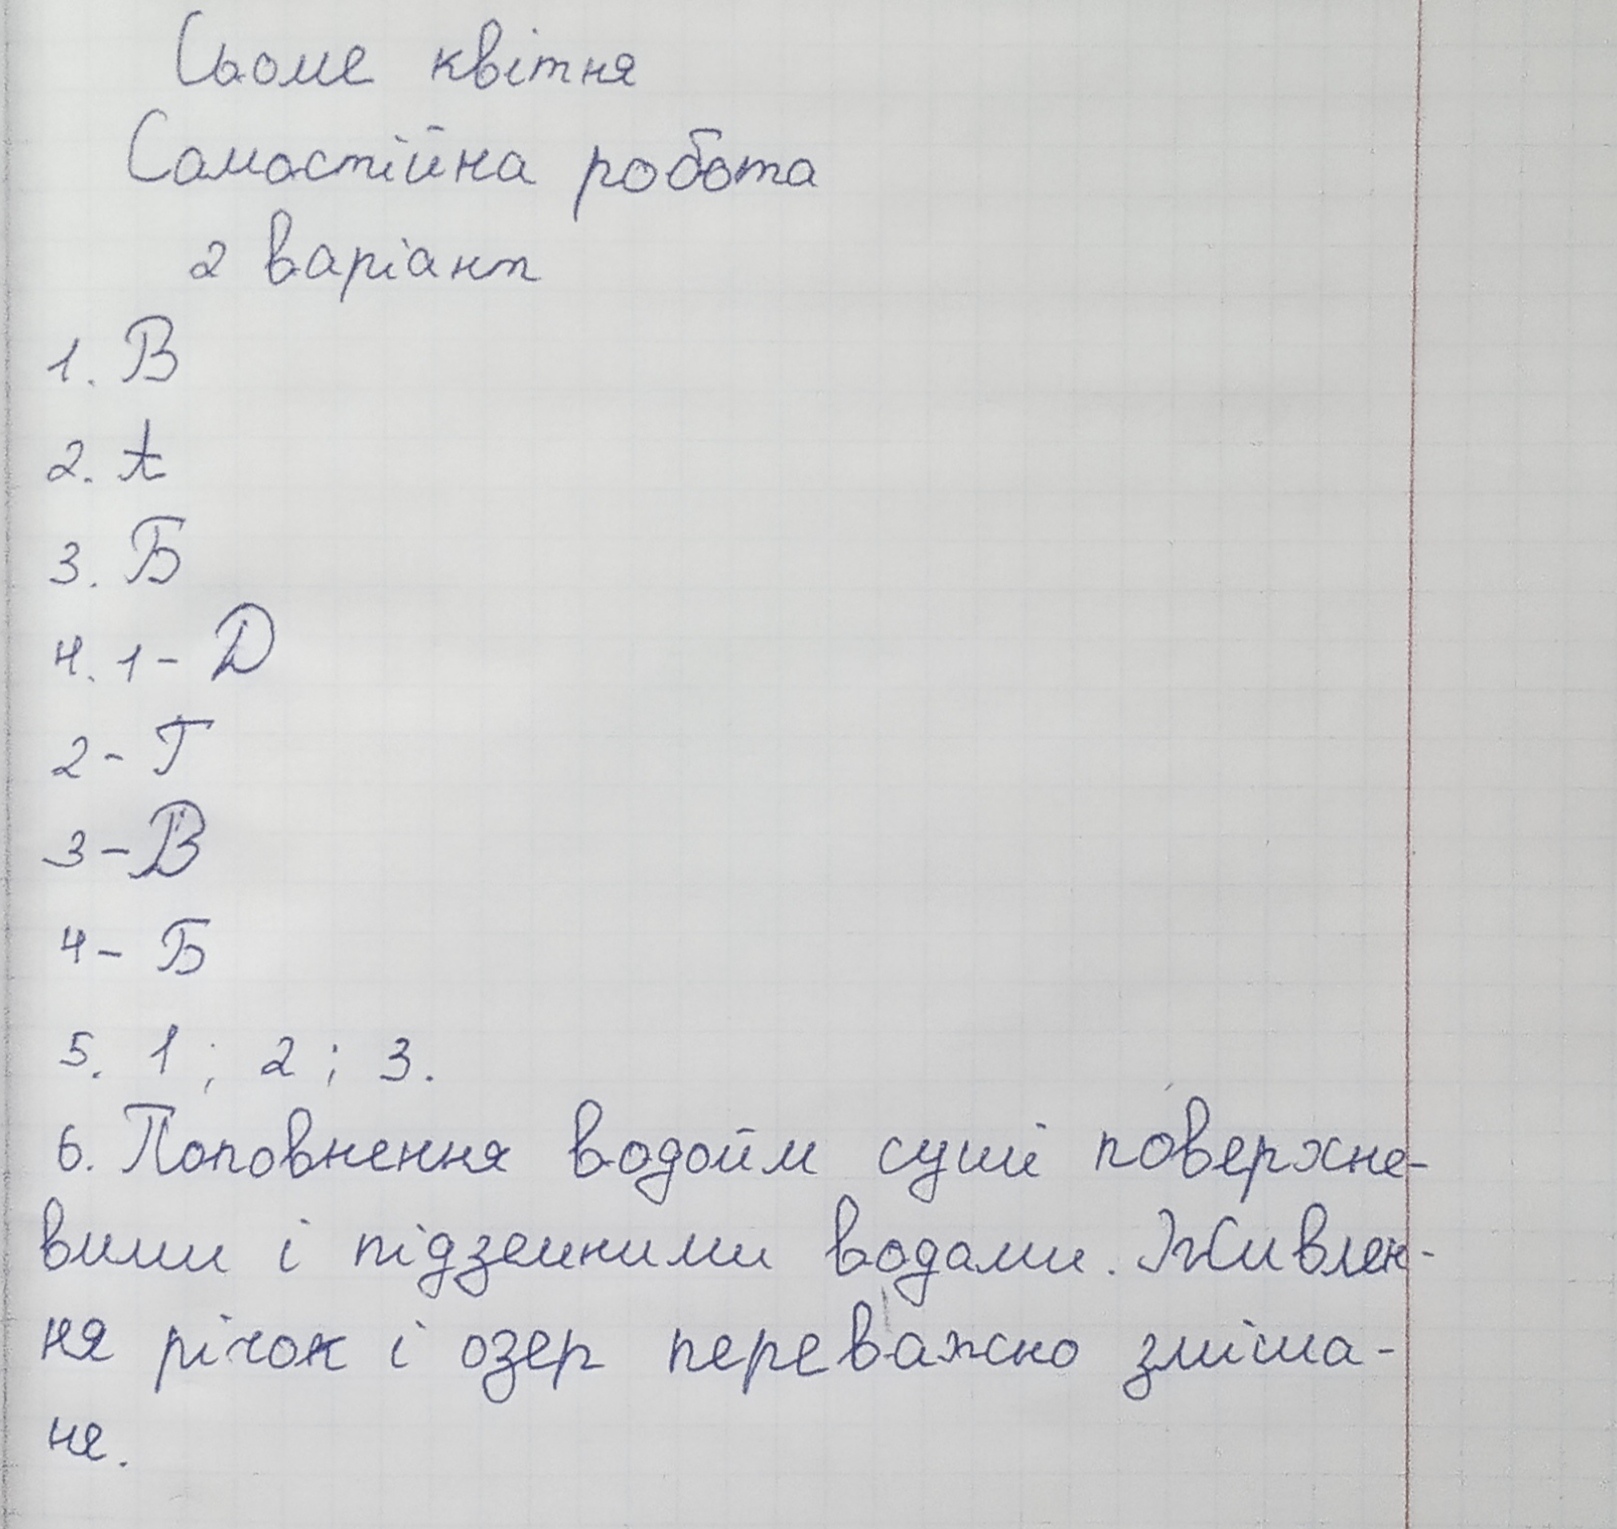 Сьоме квітня
Самостійна робота
2 варіант
1. В
2. А
3. Б
4. 1- Д
2- Г
3- В
4- Б
5. 1; 2; 3.
6. Поповнення водойм суші поверхне-
вими і підземними водами. Живлен-
ня річок і озер переважно зміша-
не.